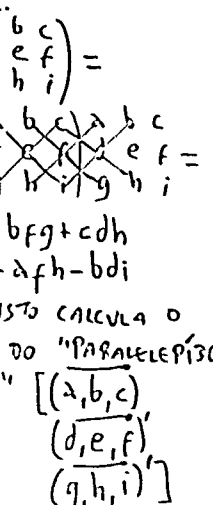 b c
e f ) =
h i
b c | a b c
e f | d e f =
h i | g h i
bfg + cdh
- afh - bdi
ISTO CALCULA O
DO "PARALELEPÍ
" [(a,b,c)
(d,e,f)'
(g,h,i)']